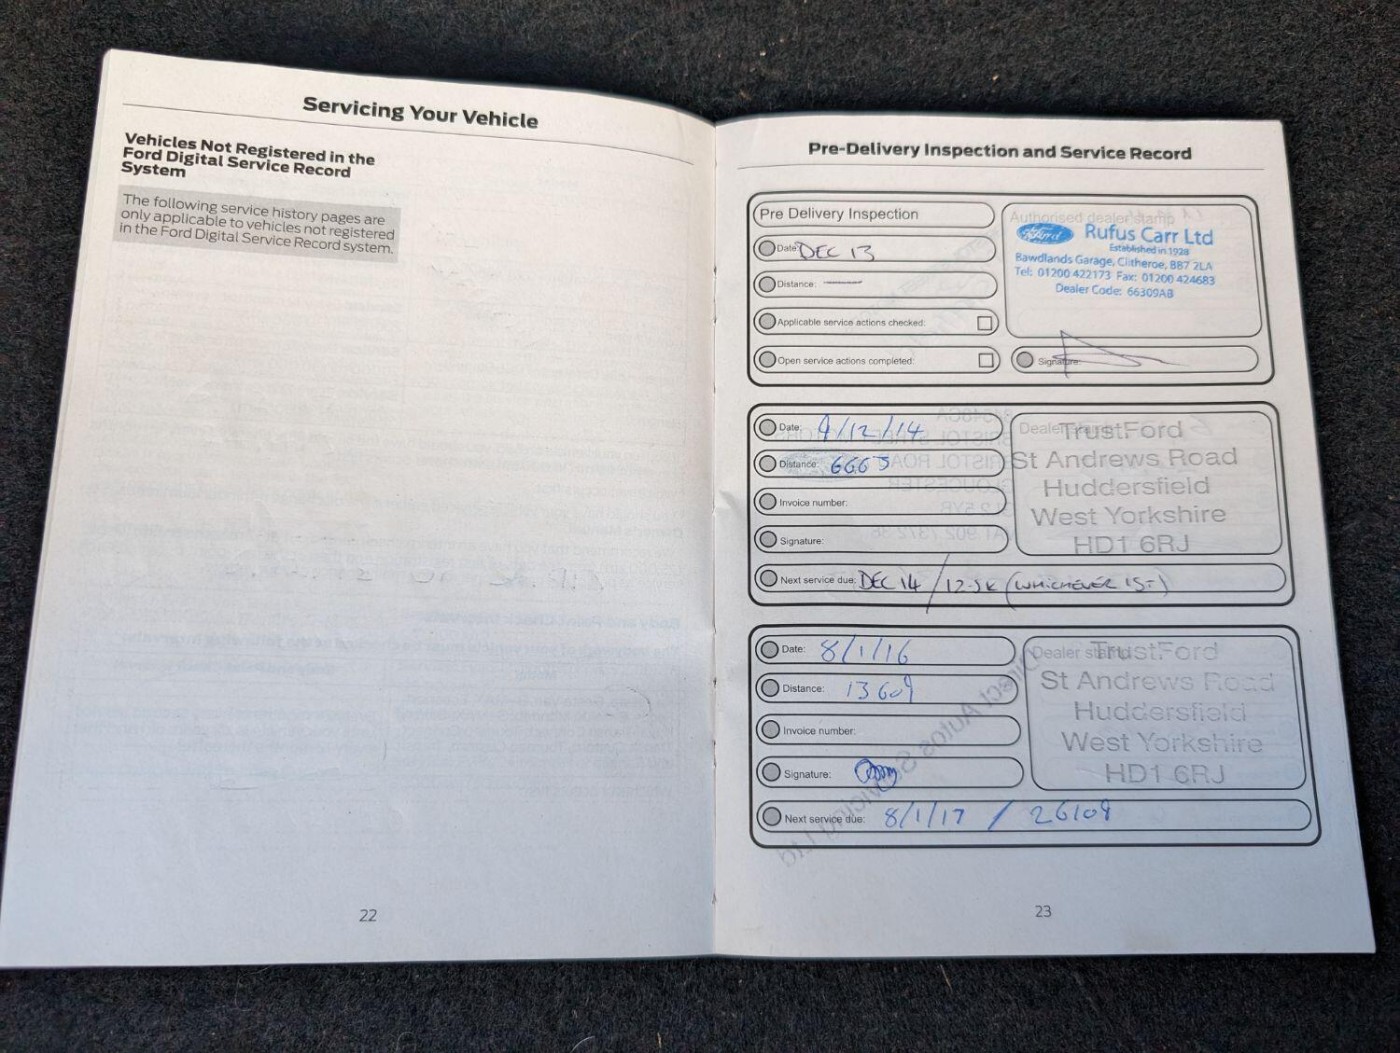 Servicing Your Vehicle
Vehicles Not Registered in the
Ford Digital Service Record
System
The following service history pages are
only applicable to vehicles not registered
in the Ford Digital Service Record system.
22
Pre-Delivery Inspection and Service Record
Pre Delivery Inspection
Date: DEC 13
Distance: —
Applicable service actions checked:
Open service actions completed:
Authorised dealer stamp
Ford Rufus Carr Ltd
Established in 1928
Bawdlands Garage, Clitheroe, BB7 2LA
Tel: 01200 422173 Fax: 01200 424683
Dealer Code: 66309AB
Signature:
Date: 9/12/14
Distance: 6665
Invoice number:
Signature:
Next service due: DEC 14 / 12.5K (WHICHEVER 1ST)
TrustFord
St Andrews Road
Huddersfield
West Yorkshire
HD1 6RJ
Date: 8/1/16
Distance: 13609
Invoice number:
Signature:
Next service due: 8/1/17 / 26109
Dealer stamp
TrustFord
St Andrews Road
Huddersfield
West Yorkshire
HD1 6RJ
23